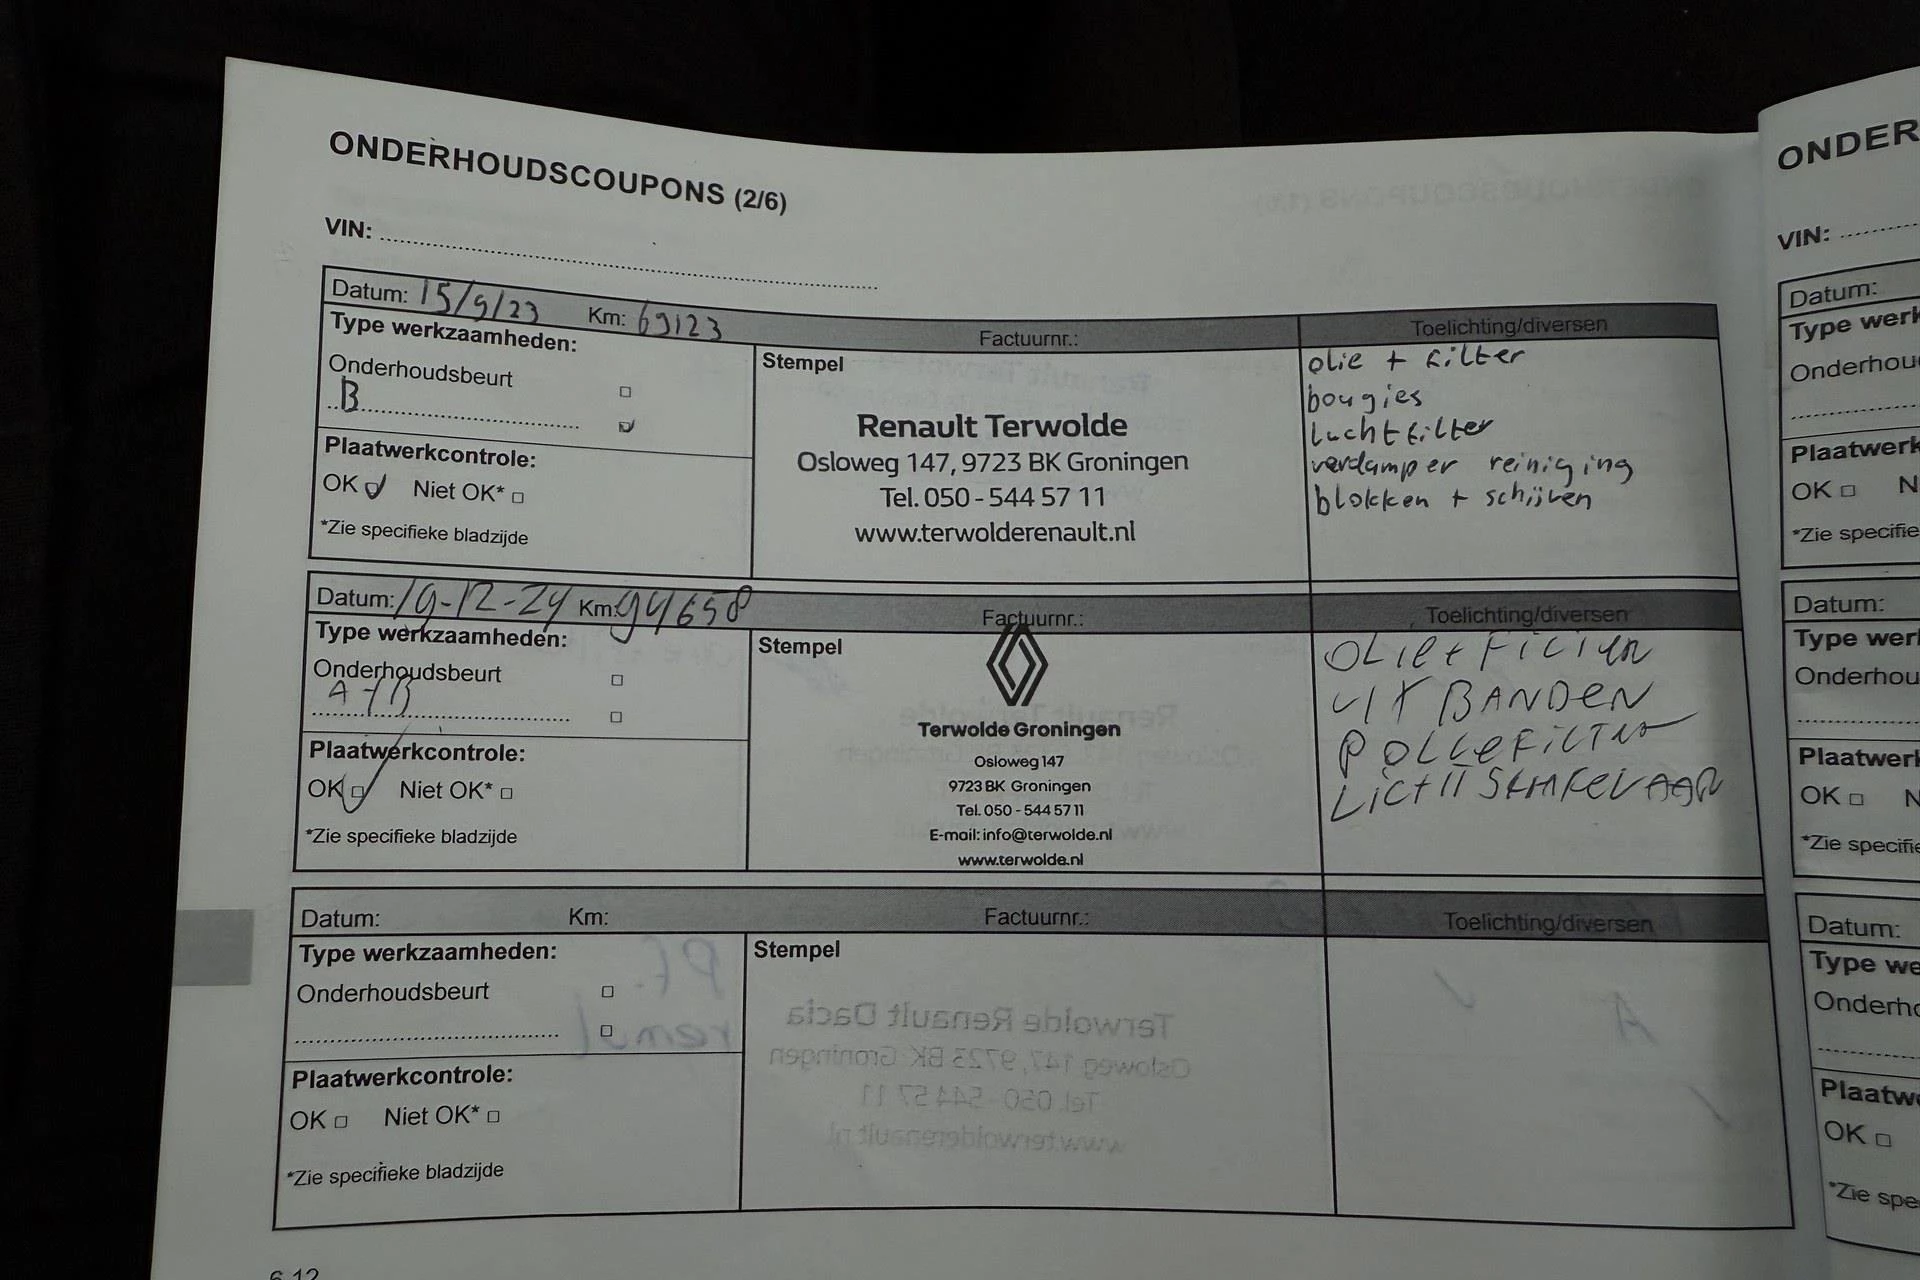 ONDERHOUDSCOUPONS (2/6)
VIN:
Datum: 15/9/23 Km: 69123 Factuurnr.: Toelichting/diversen
Type werkzaamheden:
Onderhoudsbeurt
B
Plaatwerkcontrole:
OK Niet OK*
*Zie specifieke bladzijde
Stempel
Renault Terwolde
Osloweg 147, 9723 BK Groningen
Tel. 050 - 544 57 11
www.terwolderenault.nl
olie + filter
bougies
luchtfilter
verdamper reiniging
blokken + schijven
Datum: 19-12-24 Km: 94658 Factuurnr.: Toelichting/diversen
Type werkzaamheden:
Onderhoudsbeurt
A+B
Plaatwerkcontrole:
OK Niet OK*
*Zie specifieke bladzijde
Stempel
Terwolde Groningen
Osloweg 147
9723 BK Groningen
Tel. 050 - 544 57 11
E-mail: info@terwolde.nl
www.terwolde.nl
OLIE + FILTER
BANDEN
Datum: Km: Factuurnr.: Toelichting/diversen
Type werkzaamheden:
Onderhoudsbeurt
Plaatwerkcontrole:
OK Niet OK*
*Zie specifieke bladzijde
Stempel
6.12
ONDER
VIN:
Datum:
Type werk
Onderhou
Plaatwerk
OK N
*Zie specifie
Datum:
Type werk
Onderhou
Plaatwerk
OK N
*Zie specifie
Datum:
Type we
Onderho
Plaatw
OK
*Zie spe